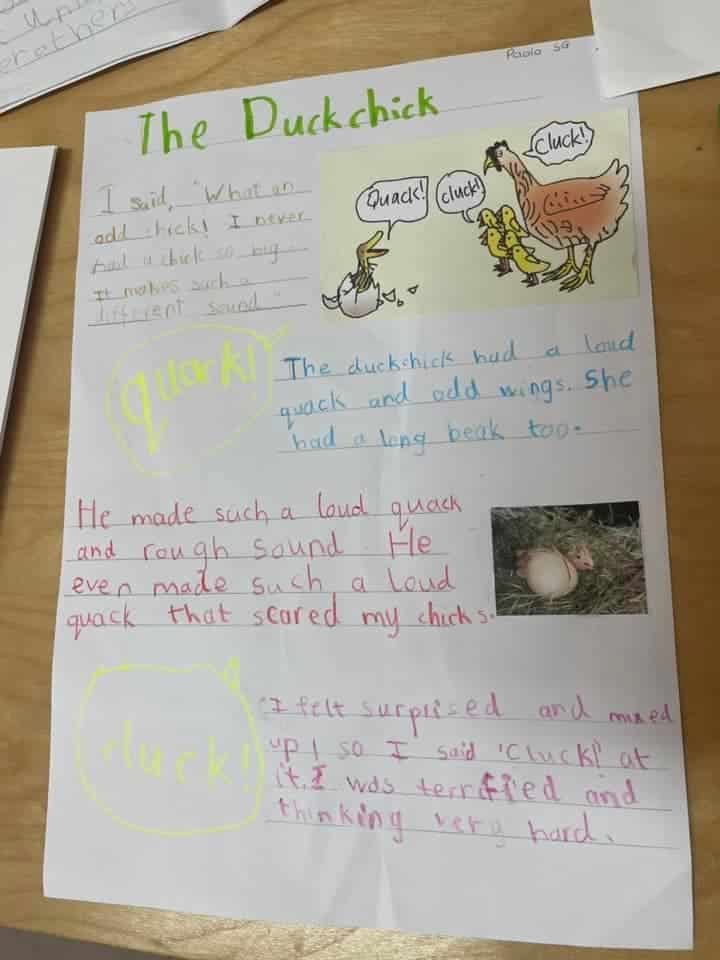 Paola SG
The Duckchick
I said, "What an
odd chick! I never
had a chick so big
It makes such a
different sound"
Quack!
cluck!
Cluck!
quark!
The duckchick had a loud
quack and odd wings. She
had a long beak too.
He made such a loud quack
and rough sound. He
even made such a loud
quack that scared my chicks.
cluck!
"I felt surprised and mixed
up! so I said 'Cluck!' at
it. I was terrified and
thinking very hard.